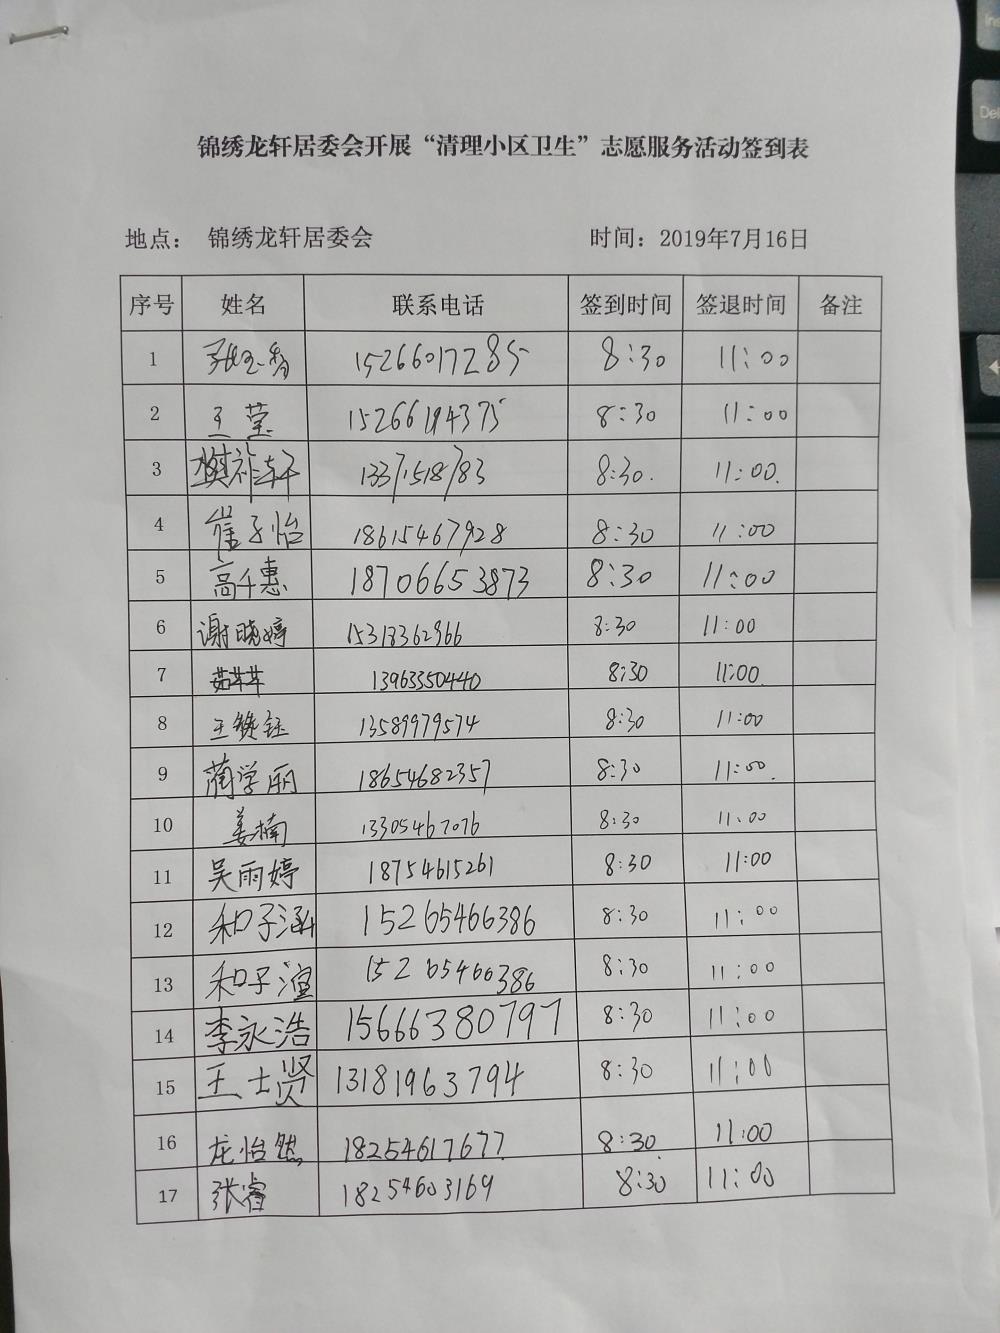 锦绣龙轩居委会开展“清理小区卫生”志愿服务活动签到表
地点： 锦绣龙轩居委会 时间：2019年7月16日
序号 姓名 联系电话 签到时间 签退时间 备注
1 15266017285 8:30 11:00
2 王莹 15266194375 8:30 11:00
3 樊祚轩 13371518783 8:30. 11:00.
4 崔子怡 18615467928 8:30 11:00
5 高千惠 18706653873 8:30 11:00
6 谢晓婷 15313362966 8:30 11:00
7 茹苹苹 13963350440 8:30 11:00
8 13589979574 8:30 11:00
9 蔺学丽 18654682357 8:30 11:00.
10 姜楠 13305467076 8:30 11:00
11 吴雨婷 18754615261 8:30 11:00
12 和子涵 15265466386 8:30 11:00
13 和子渲 15265466386 8:30 11:00
14 李永浩 15666380797 8:30 11:00
15 王士贤 13181963794 8:30 11:00
16 龙怡然 18254617677. 8:30. 11:00
17 张睿 18254603169 8:30 11:00
Del